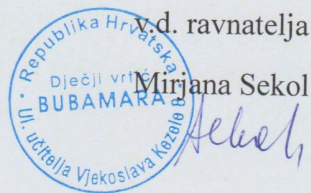 v.d. ravnatelja
Mirjana Sekol
Republika Hrvatska
Dječji vrtić
BUBAMARA
Ul. učitelja Vjekoslava Kezele 8
Sekol